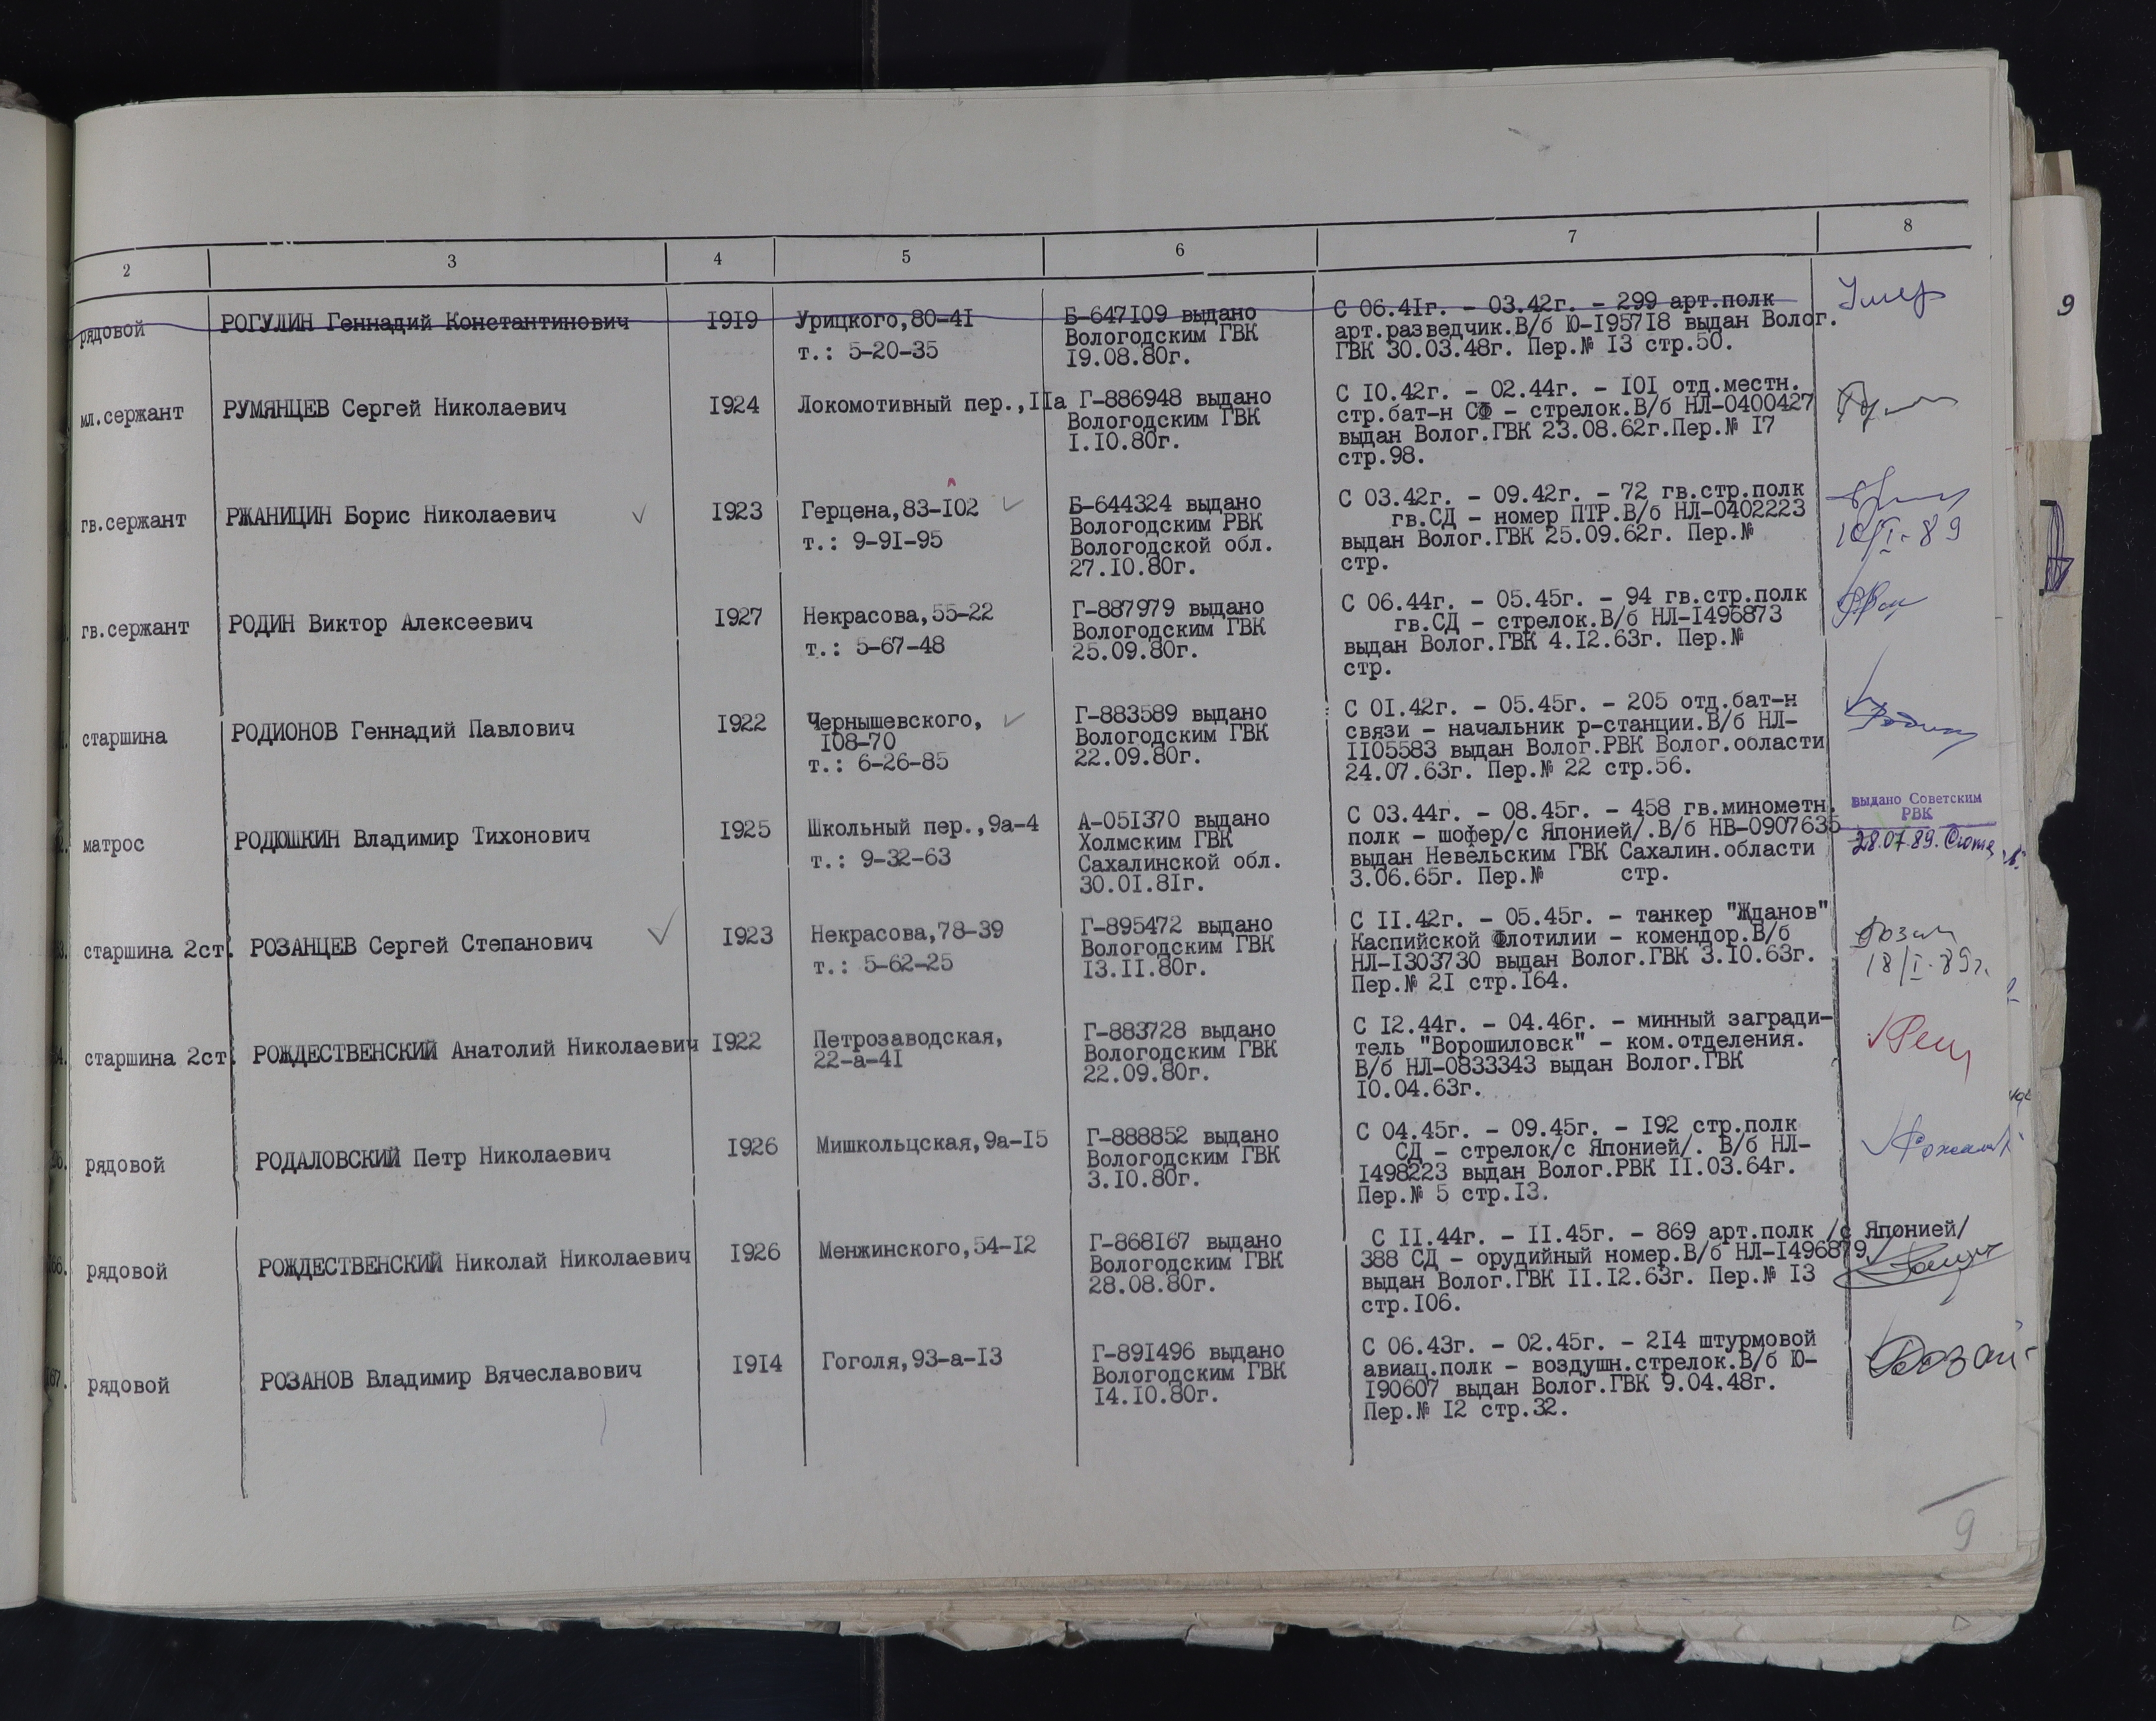 2 3 4 5 6 7 8
9
рядовой РОГУЛИН Геннадий Константинович 1919 Урицкого,80-41 Б-647109 выдано С 06.41г. - 03.42г. - 299 арт.полк Умер
т.: 5-20-35 Вологодским ГВК арт.разведчик.В/б Ю-195718 выдан Волог.
19.08.80г. ГВК 30.03.48г. Пер.№ 13 стр.50.
мл.сержант РУМЯНЦЕВ Сергей Николаевич 1924 Локомотивный пер.,11а Г-886948 выдано С 10.42г. - 02.44г. - 101 отд.местн.
Вологодским ГВК стр.бат-н СФ - стрелок.В/б НЛ-0400427
1.10.80г. выдан Волог.ГВК 23.08.62г.Пер.№ 17
стр.98.
гв.сержант РЖАНИЦИН Борис Николаевич 1923 Герцена,83-102 Б-644324 выдано С 03.42г. - 09.42г. - 72 гв.стр.полк
т.: 9-91-95 Вологодским РВК гв.СД - номер ПТР.В/б НЛ-0402223 10/I-89
Вологодской обл. выдан Волог.ГВК 25.09.62г. Пер.№
27.10.80г. стр.
гв.сержант РОДИН Виктор Алексеевич 1927 Некрасова,55-22 Г-887979 выдано С 06.44г. - 05.45г. - 94 гв.стр.полк
т.: 5-67-48 Вологодским ГВК гв.СД - стрелок.В/б НЛ-1496873
25.09.80г. выдан Волог.ГВК 4.12.63г. Пер.№
стр.
старшина РОДИОНОВ Геннадий Павлович 1922 Чернышевского, Г-883589 выдано С 01.42г. - 05.45г. - 205 отд.бат-н
108-70 Вологодским ГВК связи - начальник р-станции.В/б НЛ-
т.: 6-26-85 22.09.80г. 1105583 выдан Волог.РВК Волог.области
24.07.63г. Пер.№ 22 стр.56.
матрос РОДЮШКИН Владимир Тихонович 1925 Школьный пер.,9а-4 А-051370 выдано С 03.44г. - 08.45г. - 458 гв.минометн. выдано Советским
т.: 9-32-63 Холмским ГВК полк - шофер/с Японией/.В/б НВ-0907635 РВК
Сахалинской обл. выдан Невельским ГВК Сахалин.области 28.07.89.
30.01.81г. 3.06.65г. Пер.№ стр.
старшина 2ст. РОЗАНЦЕВ Сергей Степанович 1923 Некрасова,78-39 Г-895472 выдано С 11.42г. - 05.45г. - танкер "Жданов" Розан
т.: 5-62-25 Вологодским ГВК Каспийской Флотилии - комендор.В/б 18/I-89г.
13.11.80г. НЛ-1303730 выдан Волог.ГВК 3.10.63г.
Пер.№ 21 стр.164.
старшина 2ст. РОЖДЕСТВЕНСКИЙ Анатолий Николаевич 1922 Петрозаводская, Г-883728 выдано С 12.44г. - 04.46г. - минный загради-
22-а-41 Вологодским ГВК тель "Ворошиловск" - ком.отделения.
22.09.80г. В/б НЛ-0833343 выдан Волог.ГВК
10.04.63г.
рядовой РОДАЛОВСКИЙ Петр Николаевич 1926 Мишкольцская,9а-15 Г-888852 выдано С 04.45г. - 09.45г. - 192 стр.полк
Вологодским ГВК СД - стрелок/с Японией/. В/б НЛ-
3.10.80г. 1498223 выдан Волог.РВК 11.03.64г.
Пер.№ 5 стр.13.
66. рядовой РОЖДЕСТВЕНСКИЙ Николай Николаевич 1926 Менжинского,54-12 Г-868167 выдано С 11.44г. - 11.45г. - 869 арт.полк /с Японией/
Вологодским ГВК 388 СД - орудийный номер.В/б НЛ-1496879
28.08.80г. выдан Волог.ГВК 11.12.63г. Пер.№ 13
стр.106.
67. рядовой РОЗАНОВ Владимир Вячеславович 1914 Гоголя,93-а-13 Г-891496 выдано С 06.43г. - 02.45г. - 214 штурмовой Розан
Вологодским ГВК авиац.полк - воздушн.стрелок.В/б Ю-
14.10.80г. 190607 выдан Волог.ГВК 9.04.48г.
Пер.№ 12 стр.32.
9